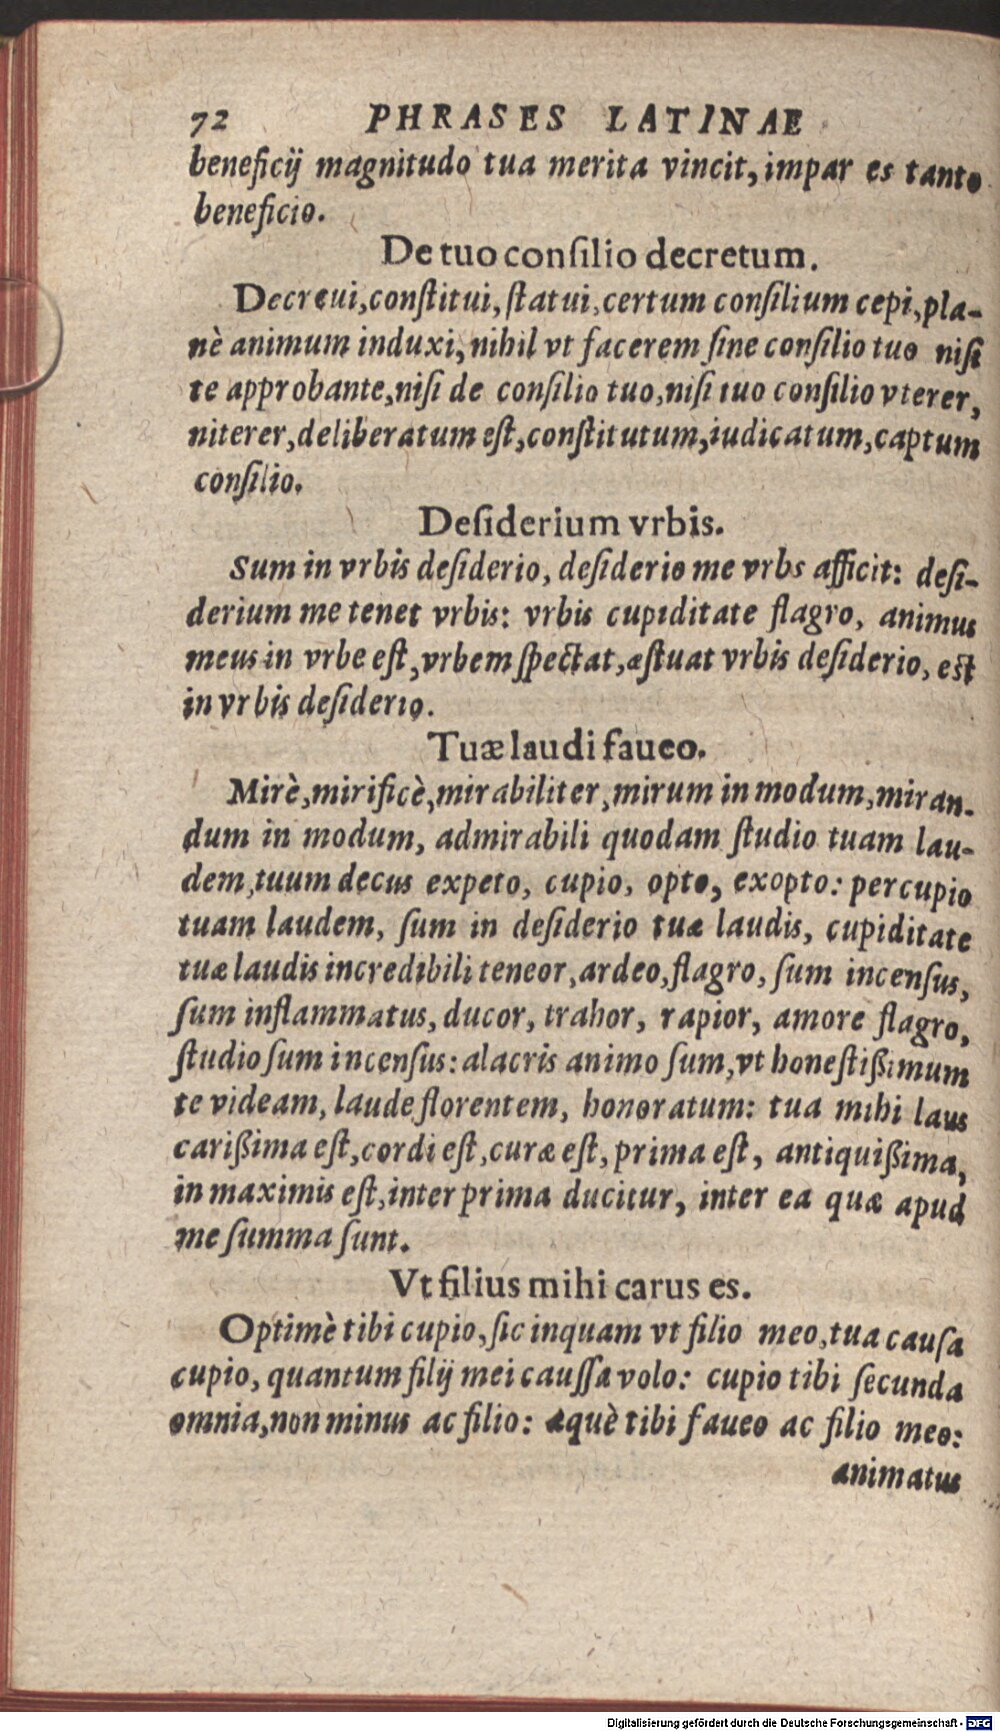 72 PHRASES LATINAE
beneficij magnitudo tua merita vincit, impar es tanto
beneficio.
De tuo conſilio decretum.
Decreui, conſtitui, ſtatui, certum conſilium cepi, pla-
nè animum induxi, nihil vt facerem ſine conſilio tuo niſi
te approbante, niſi de conſilio tuo, niſi tuo conſilio vterer,
niterer, deliberatum eſt, conſtitutum, iudicatum, captum
conſilio.
Deſiderium vrbis.
Sum in vrbis deſiderio, deſiderio me vrbs afficit: deſi-
derium me tenet vrbis: vrbis cupiditate flagro, animus
meus in vrbe eſt, vrbem ſpectat, æſtuat vrbis deſiderio, eſt
in vrbis deſiderio.
Tuæ laudi faueo.
Mirè, mirificè, mirabiliter, mirum in modum, miran-
dum in modum, admirabili quodam ſtudio tuam lau-
dem, tuum decus expeto, cupio, opto, exopto: percupio
tuam laudem, ſum in deſiderio tuæ laudis, cupiditate
tuæ laudis incredibili teneor, ardeo, flagro, ſum incenſus,
ſum inflammatus, ducor, trahor, rapior, amore flagro,
ſtudio ſum incenſus: alacris animo ſum, vt honeſtißimum
te videam, laude florentem, honoratum: tua mihi laus
carißima eſt, cordi eſt, curæ eſt, prima eſt, antiquißima,
in maximis eſt, inter prima ducitur, inter ea quæ apud
me ſumma ſunt.
Vt filius mihi carus es.
Optimè tibi cupio, ſic inquam vt filio meo, tua cauſa
cupio, quantum filij mei cauſſa volo: cupio tibi ſecunda
omnia, non minus ac filio: æquè tibi faueo ac filio meo:
animatus
Digitalisierung gefördert durch die Deutsche Forschungsgemeinschaft - DFG